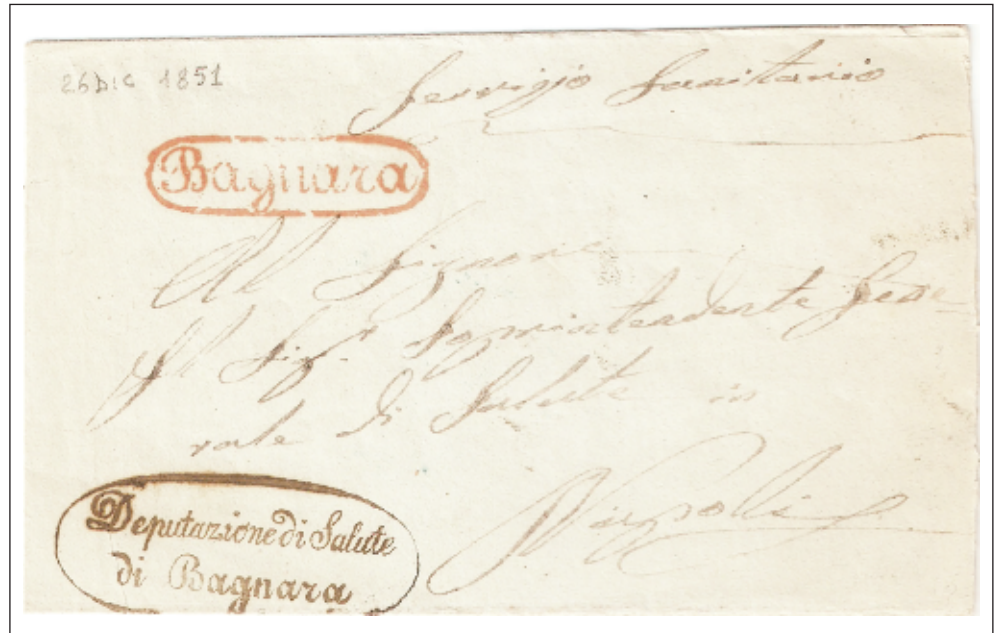 26 DIC 1851
Servizio Sanitario
Bagnara
Al Signore
Il Sig.r Soprintendente Gene-
rale di Salute in
Napoli
Deputazione di Salute
di Bagnara